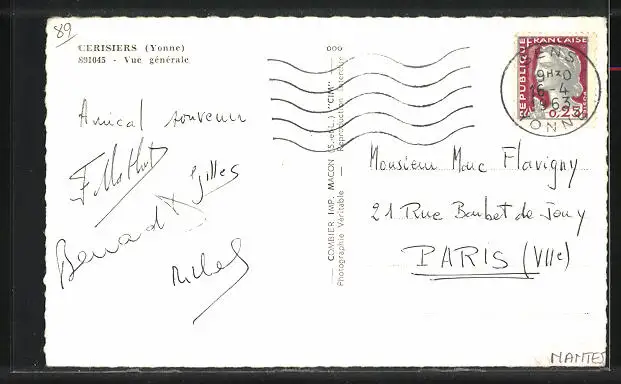 89
CERISIERS (Yonne)
891045 - Vue générale
Amical souvenir
Gilles
Bernard
Michel
COMBIER IMP. MACON (S.-et-L.) "CIM"
Photographie Véritable — Reproduction Interdite
REPUBLIQUE FRANÇAISE
0,25
SENS
9H30
16-4
1963
YONNE
Monsieur Marc Flavigny
21 Rue Barbet de Jouy
PARIS (VIIe)
NANTES